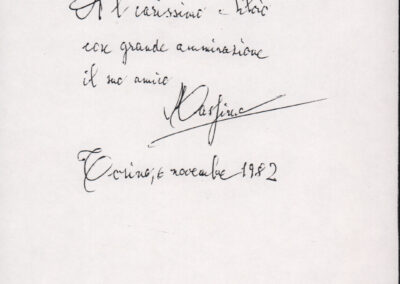 Al carissimo
con grande ammirazione
il suo amico
Torino, 6 novembre 1982